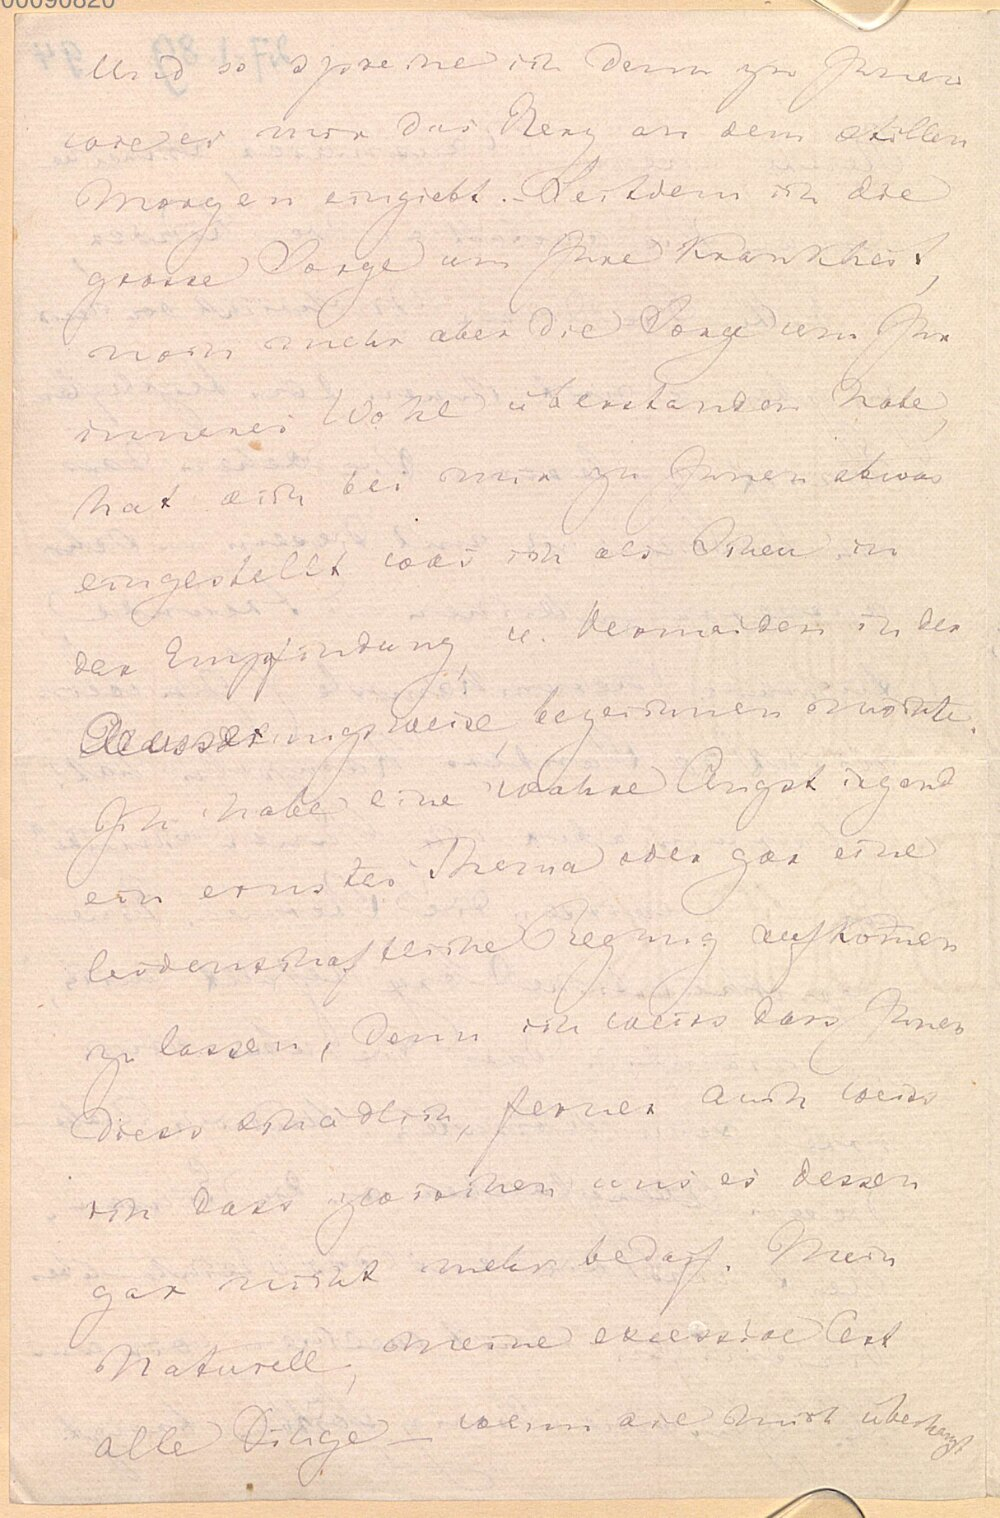 00090820
Und so spreche ich denn zu Ihnen
wie es mir das Herz an dem stillen
Morgen eingiebt. – Seitdem ich die
grosse Sorge um Ihre Krankheit,
noch mehr aber die Sorge um Ihr
inneres Wohl überstanden habe,
hat sich bei mir zu Ihnen etwas
eingestellt was ich als Scheu in
der Empfindung, u. Vermeiden in der
Äusserungsweise bezeichnen möchte.
Ich habe eine wahre Angst irgend
ein ernstes Thema oder gar eine
leidenschaftliche Regung aufkom̅en
zu lassen, denn ich weiss dass Ihnen
diess schädlich, ferner auch weiss
ich dass zwischen uns es dessen
gar nicht mehr bedarf. Mein
Naturell, meine excessive Art
alle Dinge – wenn sie mich überhaupt